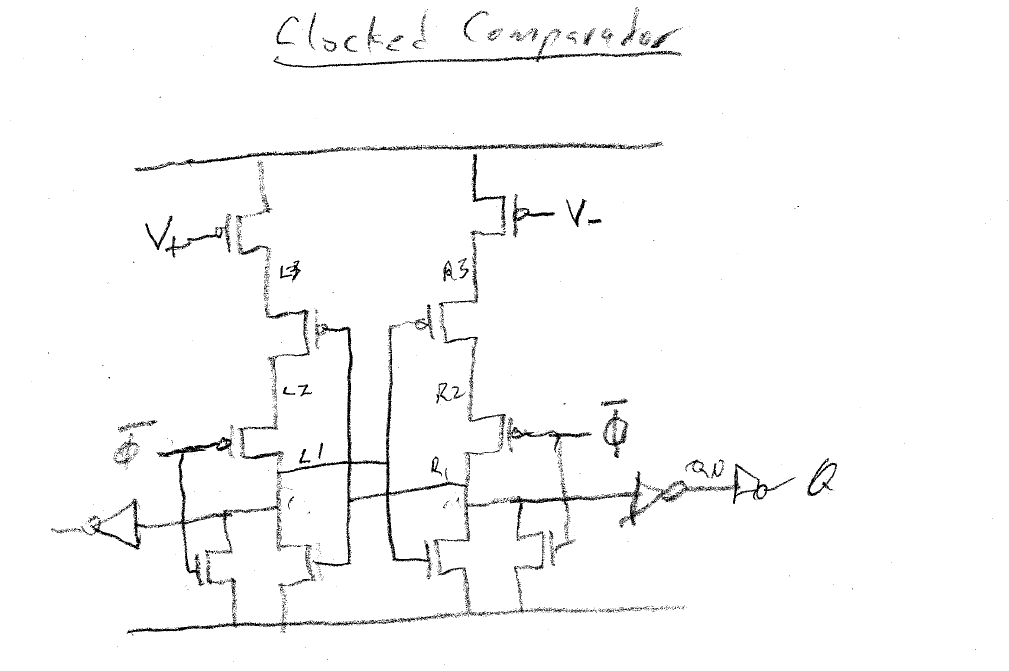 Clocked Comparador
V+
V-
L3
R3
L2
R2
Φ̅
Φ̅
L1
R1
QN
Q